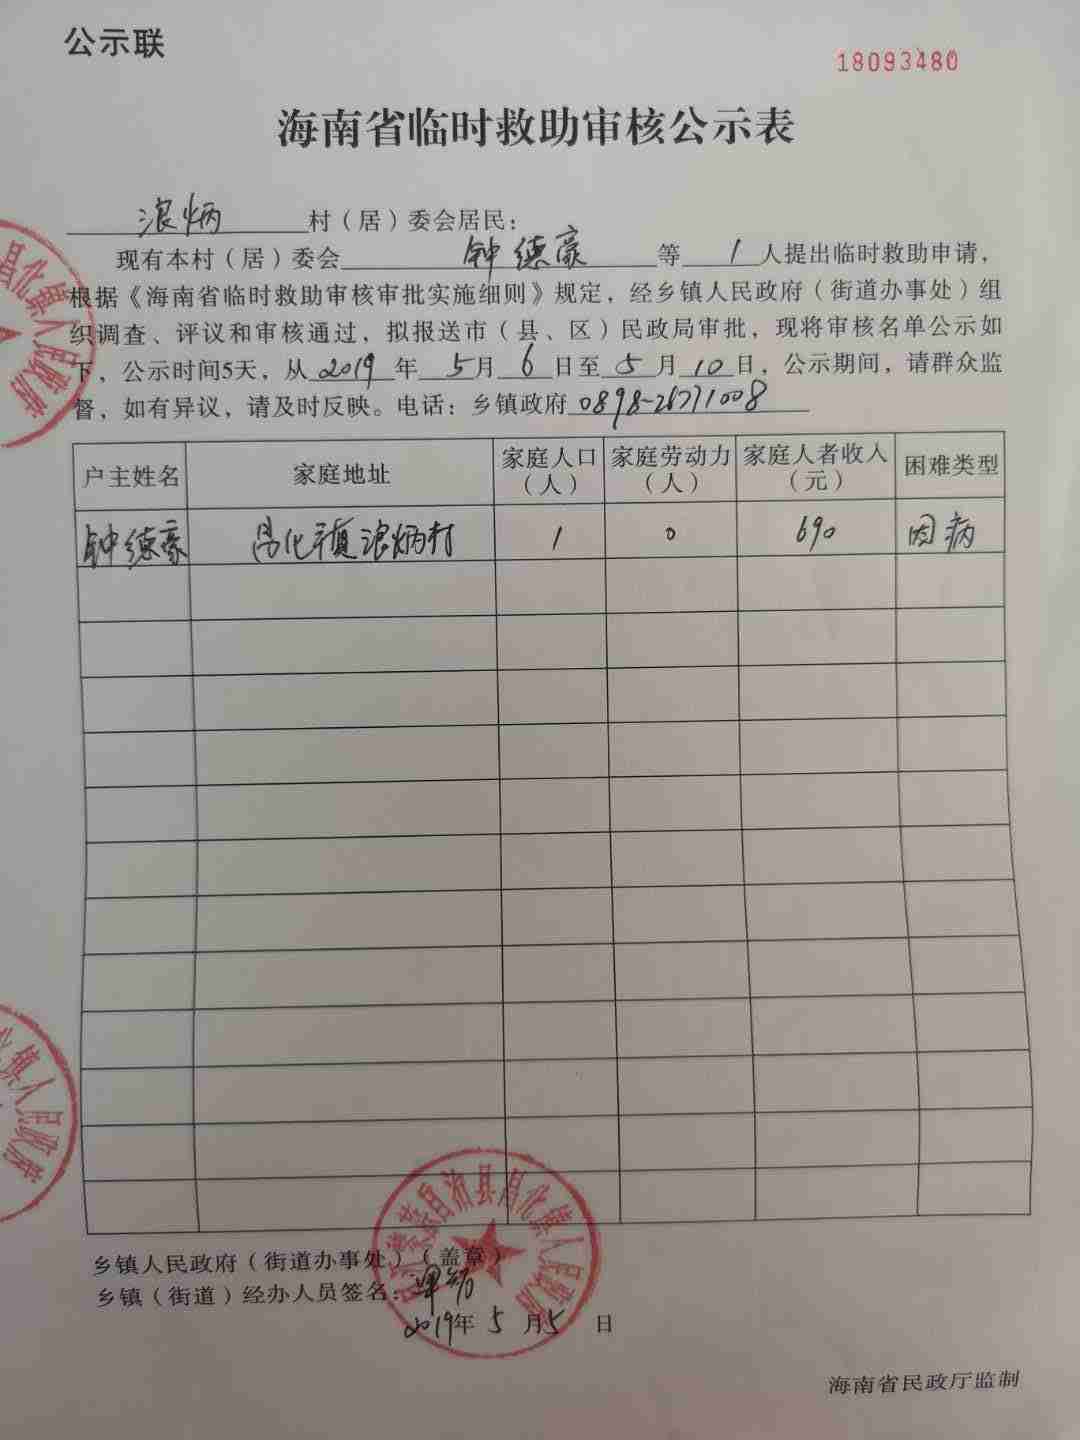 公示联
18093480
海南省临时救助审核公示表
浪炳村（居）委会居民：
现有本村（居）委会钟德豪等1人提出临时救助申请，
根据《海南省临时救助审核审批实施细则》规定，经乡镇人民政府（街道办事处）组
织调查、评议和审核通过，拟报送市（县、区）民政局审批，现将审核名单公示如
下，公示时间5天，从2019年5月6日至5月10日，公示期间，请群众监
督，如有异议，请及时反映。电话：乡镇政府0898-26771008
户主姓名 家庭地址 家庭人口（人） 家庭劳动力（人） 家庭人者收入（元） 困难类型
钟德豪 昌化镇浪炳村 1 0 690 因病
昌化镇人民政府
镇人民政府
县昌化镇人民政府
乡镇人民政府（街道办事处）（盖章）
乡镇（街道）经办人员签名：
2019年5月5日
海南省民政厅监制